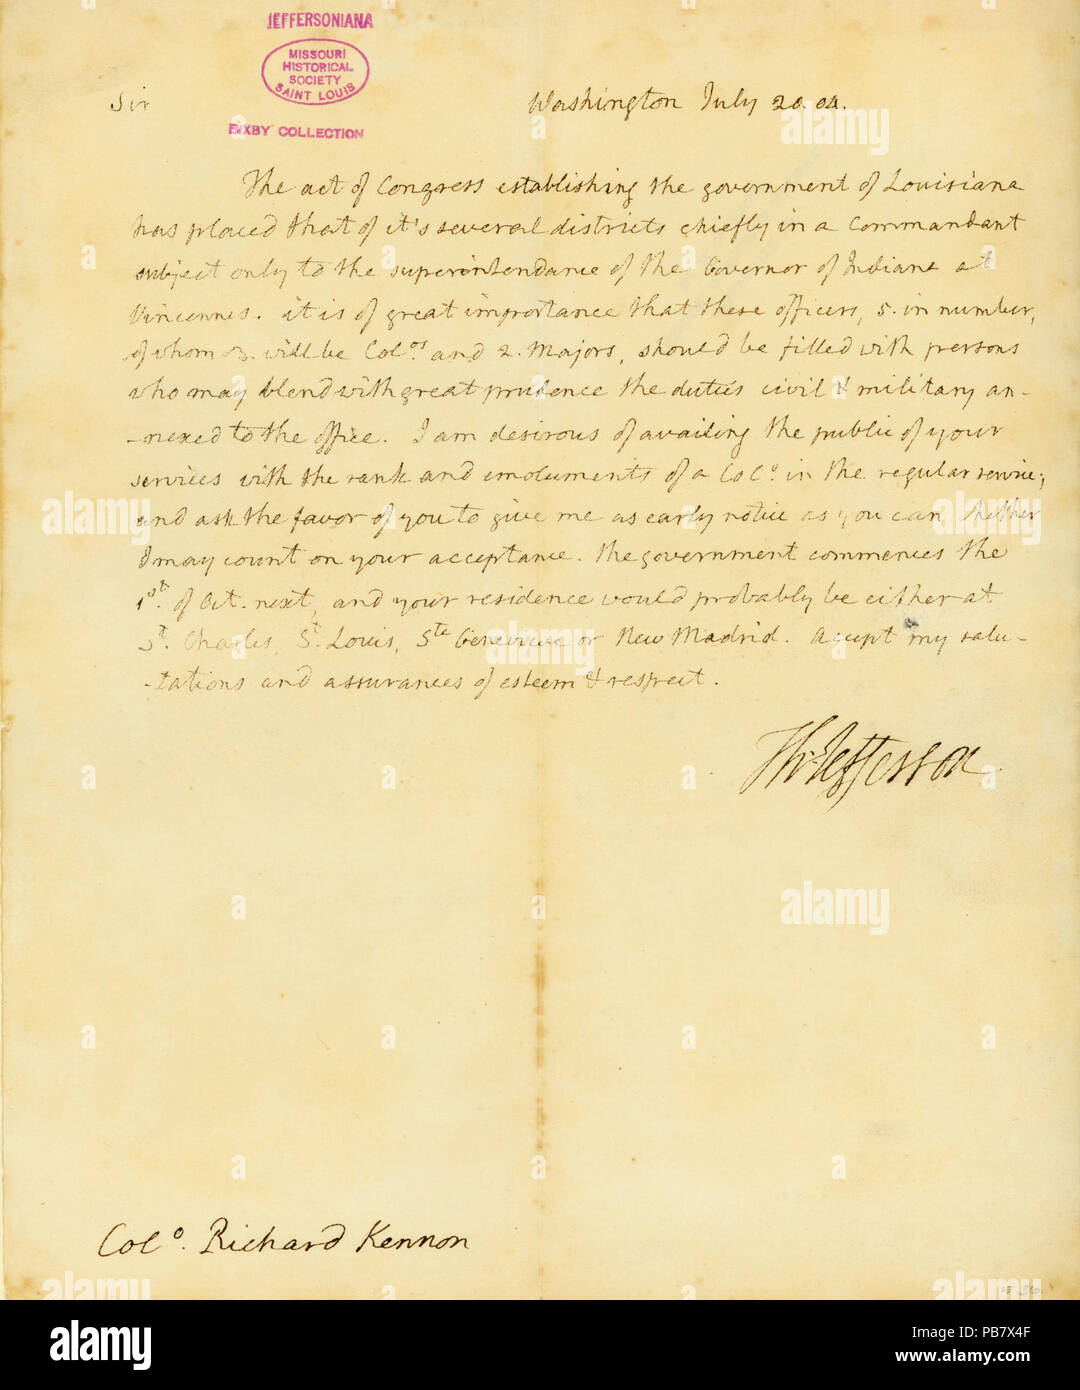 JEFFERSONIANA
MISSOURI
HISTORICAL
SOCIETY
SAINT LOUIS
BIXBY COLLECTION
Sir
Washington July 20. 04.
The act of Congress establishing the government of Louisiana
has placed that of it's several districts chiefly in a Commandant
subject only to the superintendance of the Governor of Indiana at
Vincennes. it is of great importance that these officers, 5. in number,
of whom 3. will be Colos and 2. Majors, should be filled with persons
who may blend with great prudence the duties civil & military an-
-nexed to the office. I am desirous of availing the public of your
services with the rank and emoluments of a Colo. in the regular service;
and ask the favor of you to give me as early notice as you can whether
I may count on your acceptance. the government commences the
1st. of Oct. next, and your residence would probably be either at
St. Charles, St. Louis, Ste Genevieve or New Madrid. Accept my salu-
-tations and assurances of esteem & respect.
Th: Jefferson
Colo. Richard Kennon
alamy
a
alamy
Image ID: PB7X4F
www.alamy.com